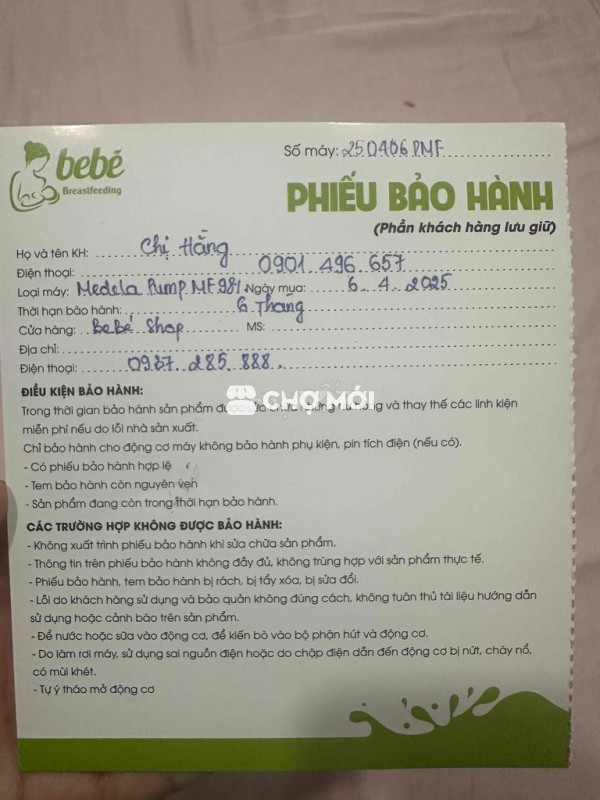 bebé
Breastfeeding
Số máy: 250406 PMF
PHIẾU BẢO HÀNH
(Phần khách hàng lưu giữ)
Họ và tên KH: Chị Hằng
Điện thoại: 0901 496 657
Loại máy: Medela Pump MF 981 Ngày mua: 6.4.2025
Thời hạn bảo hành: 6 Tháng
Cửa hàng: Bebé Shop MS:
Địa chỉ:
Điện thoại: 0937.285.888.
ĐIỀU KIỆN BẢO HÀNH:
CHỢ MỚI
Trong thời gian bảo hành sản phẩm được và thay thế các linh kiện
miễn phí nếu do lỗi nhà sản xuất.
Chỉ bảo hành cho động cơ máy không bảo hành phụ kiện, pin tích điện (nếu có).
- Có phiếu bảo hành hợp lệ
- Tem bảo hành còn nguyên vẹn
- Sản phẩm đang còn trong thời hạn bảo hành.
CÁC TRƯỜNG HỢP KHÔNG ĐƯỢC BẢO HÀNH:
- Không xuất trình phiếu bảo hành khi sửa chữa sản phẩm.
- Thông tin trên phiếu bảo hành không đầy đủ, không trùng hợp với sản phẩm thực tế.
- Phiếu bảo hành, tem bảo hành bị rách, bị tẩy xóa, bị sửa đổi.
- Lỗi do khách hàng sử dụng và bảo quản không đúng cách, không tuân thủ tài liệu hướng dẫn
sử dụng hoặc cảnh báo trên sản phẩm.
- Để nước hoặc sữa vào động cơ, để kiến bò vào bộ phận hút và động cơ.
- Do làm rơi máy, sử dụng sai nguồn điện hoặc do chập điện dẫn đến động cơ bị nứt, cháy nổ,
có mùi khét.
- Tự ý tháo mở động cơ